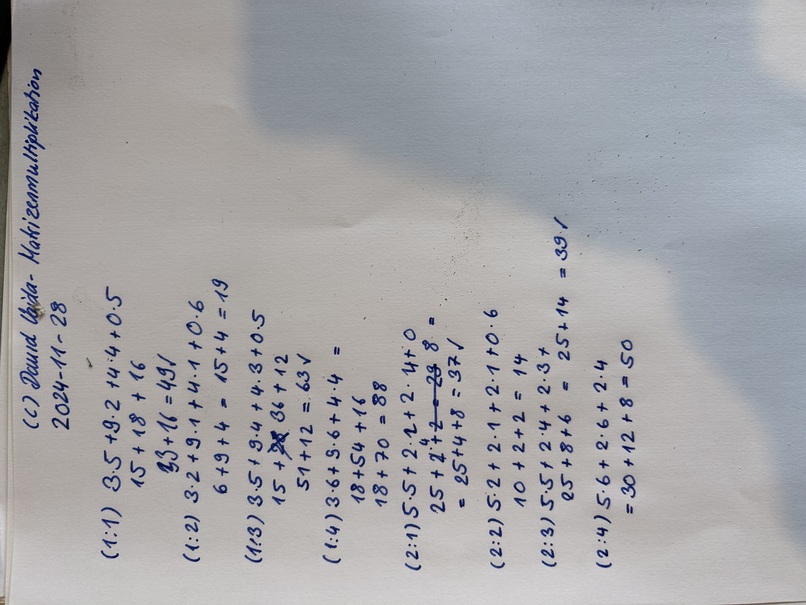 (C) David Vajda - Matrizenmultiplikation
2024-11-28
(1:1) 3·5 +9·2 +4·4+0·5
15 + 18 + 16
33+16 = 49✓
(1:2) 3·2 + 9·1 + 4·1 + 0·6
6+9+4 = 15+4 = 19
(1:3) 3·5 + 9·4 + 4·3 + 0·5
15 + 28 36 + 12
51+12 = 63✓
(1:4) 3·6+9·6+4·4 =
18+54 +16
18+70 = 88
(2:1) 5·5 + 2·2 + 2·4+ 0
25 + 2 4 + 2 = 29 8 =
= 25+4+8 = 37✓
(2:2) 5·2 + 2·1 + 2·1 +0·6
10 +2+2 = 14
(2:3) 5·5 + 2·4 + 2·3+
25+8+6 = 25+14 = 39✓
(2:4) 5·6 + 2·6 + 2·4
= 30+12+8 = 50